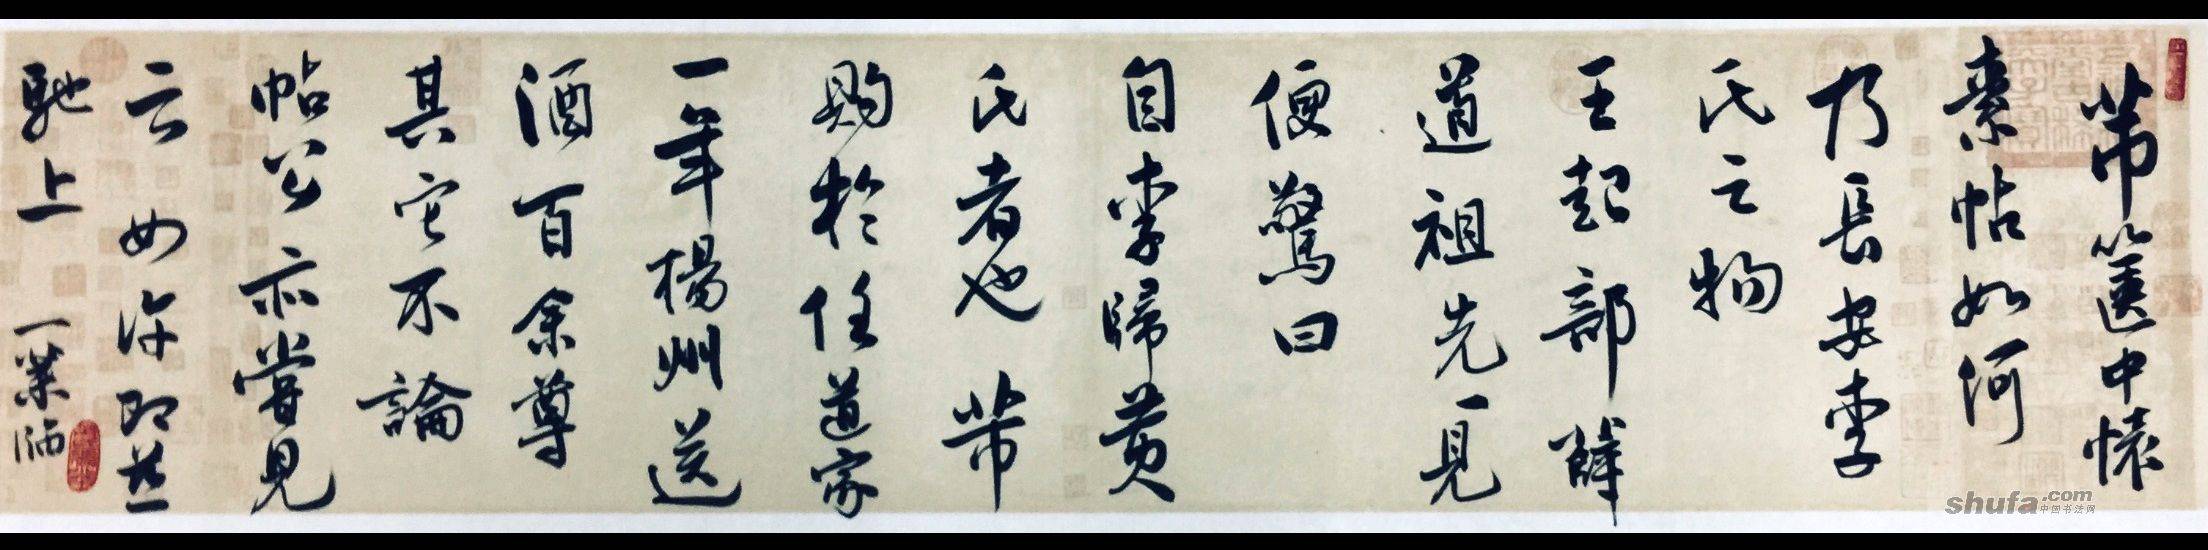 芾篋中懷
素帖如何
乃長安李
氏之物
王起部薛
道祖先一見
便驚曰
自李歸黃
氏者也 芾
購於任道家
一年楊州送
酒百余尊
其它不論
帖公亦嘗見
云 如許即並
馳上
shufa.com
中国书法网